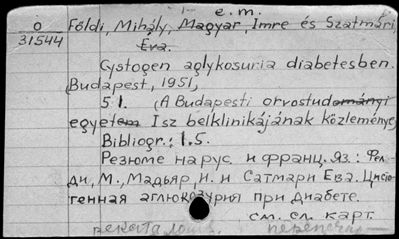 e.m.
О
31544
Földi, Mihály, Magyar, Imre és Szatmári,
Éva.
Cystogen aglykosuria diabetesben.
(Budapest, 1951)
5 l. (A Budapesti orvostudományi
egyetem Isz belklinikájának közleménye)
Bibliogr.: l. 5.
Резюме на рус. и франц. яз.: Фел-
ди, М., Мадьяр, И. и Сатмари Ева. Цисто-
генная аглюкозурия при диабете.
см. сл. карт.